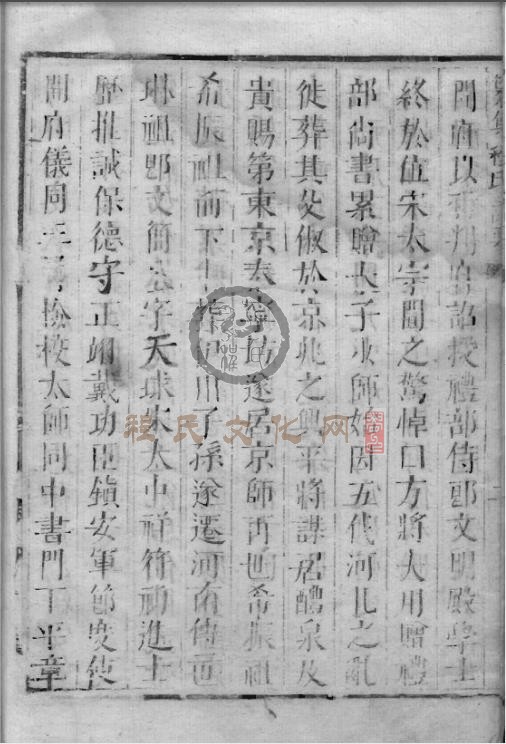 開府以 州 詔授禮部侍郎文明殿學士
終於位宋太宗聞之驚悼曰方將大用贈禮
部尚書累贈太子少師始因五代河北之亂
徙葬其父俶於京兆之興平將謀居醴泉及
貴賜第東京泰寧坊遂居京師再世希振祖
希振祖而下 川子孫遂遷河南傳至
琳祖即文簡公字天球宋太中祥符初進士
歷推誠保德守正翊戴功臣鎮安軍節度使
開府儀同三司檢校太師同中書門下平章
程氏文化网